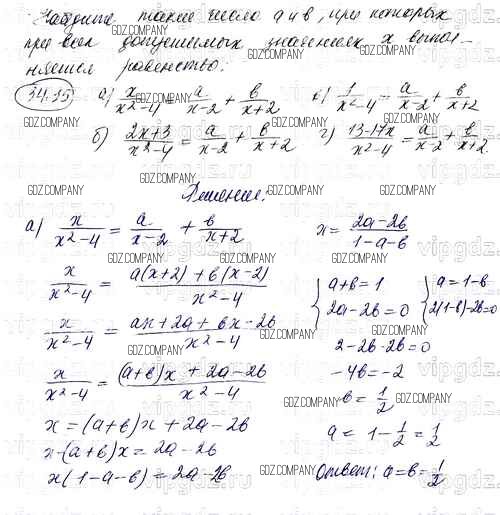 Найдите такие числа a и b, при которых
при всех допустимых значениях x выпол-
няется равенство:
34.35 а) x/(x²-4) = a/(x-2) + b/(x+2) в) 1/(x²-4) = a/(x-2) + b/(x+2)
б) (2x+3)/(x²-4) = a/(x-2) + b/(x+2) г) (13-17x)/(x²-4) = a/(x-2) + b/(x+2)
Решение:
а) x/(x²-4) = a/(x-2) + b/(x+2)
x/(x²-4) = (a(x+2)+b(x-2))/(x²-4)
x/(x²-4) = (ax+2a+bx-2b)/(x²-4)
x/(x²-4) = ((a+b)x+2a-2b)/(x²-4)
x=(a+b)x+2a-2b
x-(a+b)x=2a-2b
x(1-a-b)=2a-2b
x = (2a-2b)/(1-a-b)
{a+b=1 {a=1-b
2a-2b=0 2(1-b)-2b=0
2-2b-2b=0
-4b=-2
b=1/2
a=1-1/2=1/2
Ответ: a=b=1/2
GDZ.COMPANY
vipgdz.ru